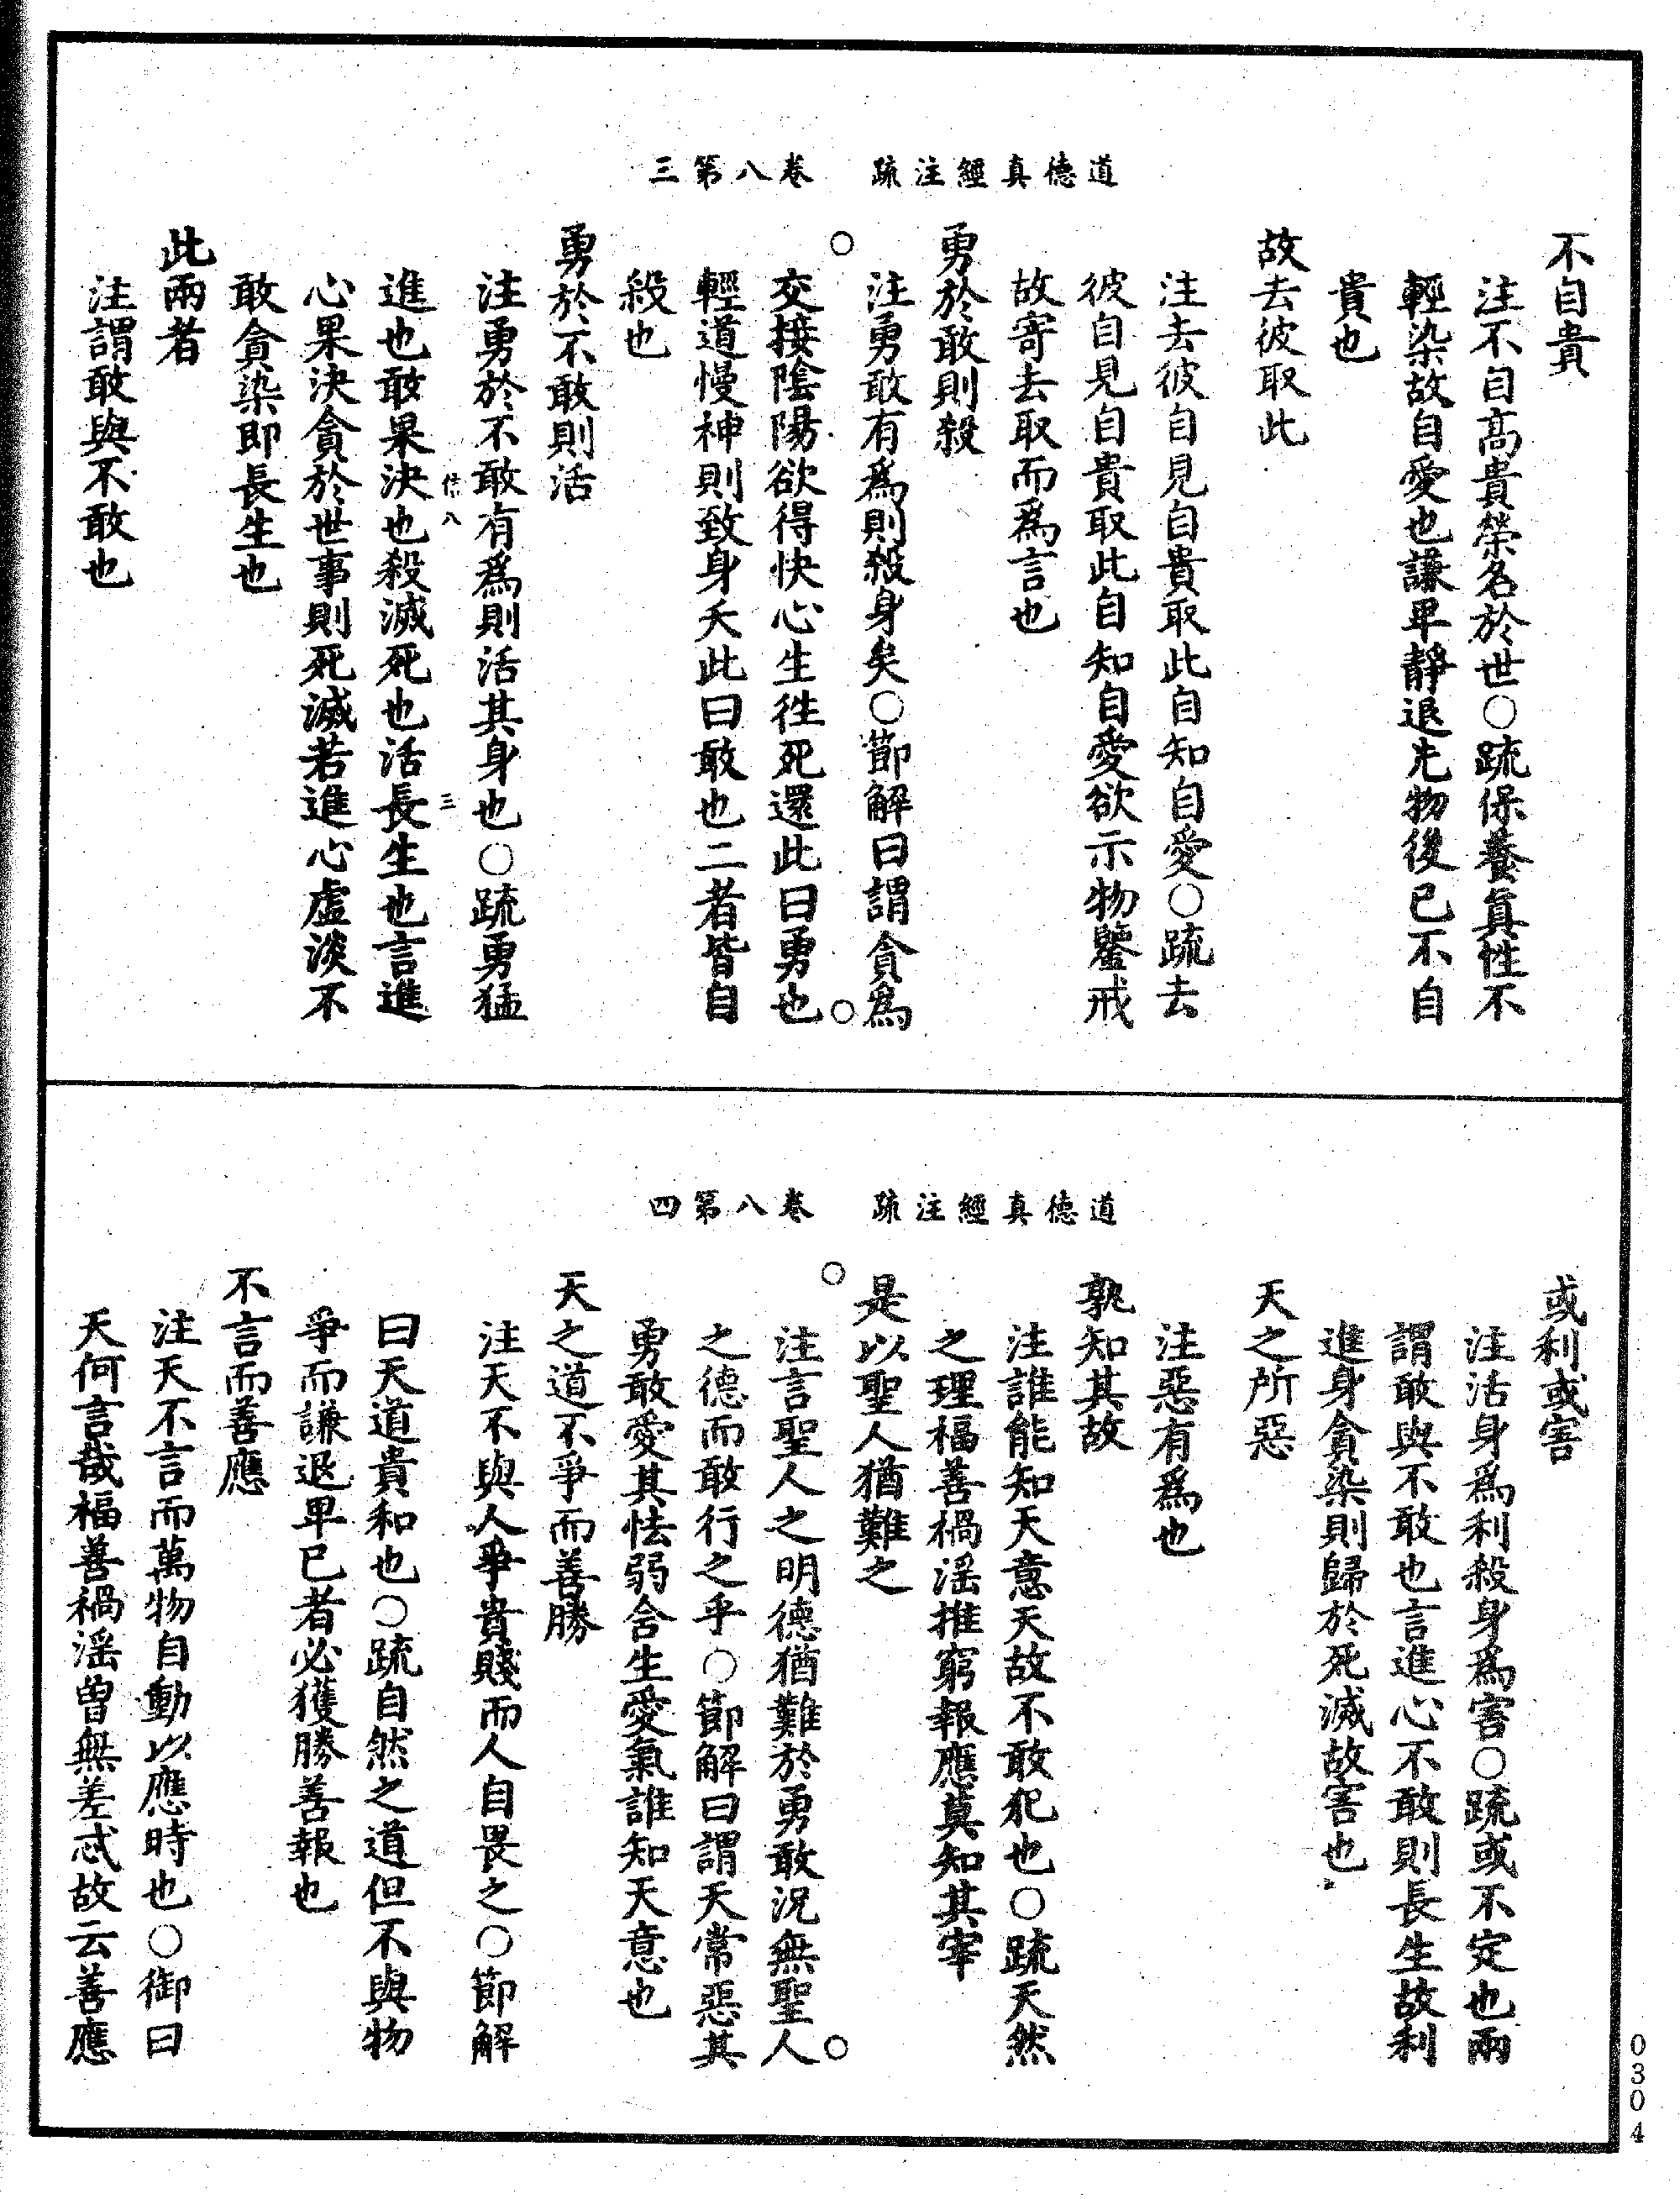 道德真經注疏　卷八第三
不自貴
注不自高貴榮名於世○疏保養真性不
輕染故自愛也謙卑靜退先物後已不自
貴也
故去彼取此
注去彼自見自貴取此自知自愛○疏去
彼自見自貴取此自知自愛欲示物鑒戒
故寄去取而爲言也
勇於敢則殺
注勇敢有爲則殺身矣○節解曰謂貪爲
交接陰陽欲得快心生徃死還此曰勇也
輕道慢神則致身夭此曰敢也二者皆自
殺也
勇於不敢則活
注勇於不敢有爲則活其身也○疏勇猛
進也敢果決也殺滅死也活長生也言進
心果決貪於世事則死滅若進心虛淡不
敢貪染即長生也
此兩者
注謂敢與不敢也
道德真經注疏　卷八第四
或利或害
注活身爲利殺身爲害○疏或不定也兩
謂敢與不敢也言進心不敢則長生故利
進身貪染則歸於死滅故害也
天之所惡
注惡有爲也
孰知其故
注誰能知天意天故不敢犯也○疏天然
之理福善禍淫推窮報應莫知其宰
是以聖人猶難之
注言聖人之明德猶難於勇敢況無聖人
之德而敢行之乎○節解曰謂天常惡其
勇敢愛其怯弱含生愛氣誰知天意也
天之道不爭而善勝
注天不與人爭貴賤而人自畏之○節解
曰天道貴和也○疏自然之道但不與物
爭而謙退卑已者必獲勝善報也
不言而善應
注天不言而萬物自動以應時也○御曰
天何言哉福善禍淫曾無差忒故云善應
0304